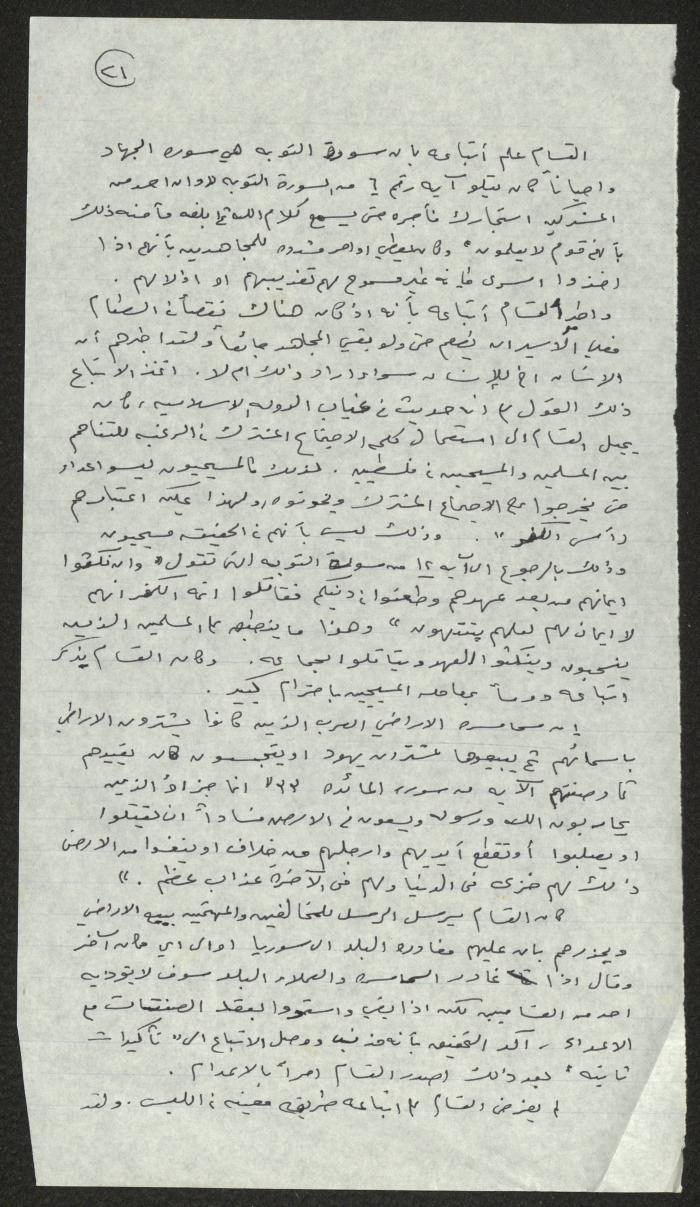 ٢١
القسام علم أتباعه بان سورة التوبه هي سوره الجهاد
واحياناً كان يتلو آيه رقم ٦ من السورة التوبه "وان احد من
المشركين استجارك فأجره حتى يسمع كلام الله ثم ابلغه مأمنه ذلك
بأنهم قوم لا يعلمون" وكان يعطي اوامر مشدده للمجاهدين بأنهم اذا
اخذوا اسرى فإنه غير مسموح لهم تعذيبهم او اذلالهم .
واخبر القسام أتباعه بأنه اذا كان هناك نقصاً في الطعام
فعلى الأسير ان يطعم حتى ولو بقي المجاهد جائعاً ولقد اخبرهم أن
الانسان اخ للإنسان سواء اراد ذلك ام لا . اتخذ الاتباع
ذلك القول انه حديث في غياب الدوله الاسلاميه ، كان
يميل القسام الى استعمال كلمه الاجماع المشترك في الرغبه للتفاهم
بين المسلمين والمسيحيين في فلسطين . لذلك فالمسيحيون ليسو اعداء
حتى يخرجوا عن الاجماع المشترك ويخونوه ولهذا يمكن اعتبارهم
رأس الكفر" . وذلك ليس بأنهم في الحقيقه مسيحيون
وذلك بالرجوع الى الآيه ١٢ من سورة التوبه التي تقول "وان نكثوا
ايمانهم من بعد عهدهم وطعنوا في دينكم فقاتلوا ائمه الكفر انهم
لا ايمان لهم لعلهم ينتهون" وهذا ما ينطبق على المسلمين الذين
ينسحبون وينكثوا العهد ويقاتلوا الجماعه . وكان القسام يذكر
اتباعه دوماً بمعامله المسيحيين باحترام كبير .
إن سماسره الاراضي العرب الذين كانوا يشترون الاراضي
باسمائهم ثم يبيعوها لمشتران يهود او يتجسسون كان يقيدهم
كما وصفتهم الآيه من سوره المائده ٣٣ "انما جزاؤ الذين
يحاربون الله ورسوله ويسعون في الارض فساداً ان يقتلوا
او يصلبوا أو تقطع أيديهم وارجلهم من خلاف او ينفوا من الارض
ذلك لهم خزى فى الدنيا ولهم فى الآخرة عذاب عظيم ."
كان القسام يرسل الرسل للمخالفين والمهتمين ببيع الاراضي
ويحذرهم بان عليهم مغادره البلد الى سوريا او الى اي مكان آخر
وقال اذا غادر السماسره والعملاء البلد سوف لا يؤذيه
احد من القساميين لكن اذا بقي واستمروا بعقد الصفقات مع
الاعداء ، أكد التحقيق بأنه مذنب ووصل الاتباع الى "تأكيدات
ثابته" بعد ذلك اصدر القسام امراً بالاعدام .
لم يفرض القسام على اتباعه طريقه معينه في اللبس . ولقد